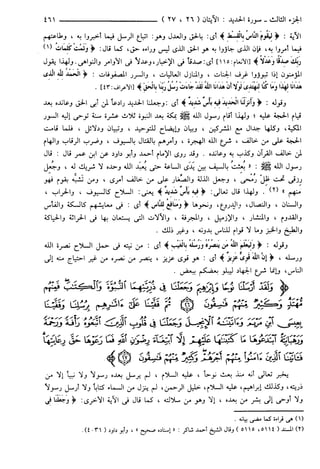 الجزء الثالث ـ سورة الحديد : الآيتان ( ٢٦ ، ٢٧ )
٤٦١
الآية : ﴿ لِيَقُومَ النَّاسُ بِالْقِسْطِ ﴾ أي : بالحق والعدل وهو : اتباع الرسل فيما أخبروا به ، وطاعتهم
فيما أمروا به ، فإن الذي جاؤوا به هو الحق الذي ليس وراءه حق ، كما قال : ﴿ وَتَمَّتْ كَلِمَاتُ (١)
رَبِّكَ صِدْقًا وَعَدْلًا ﴾ [الأنعام: ١١٥] أي : صدقاً في الإخبار ، وعدلاً في الأوامر والنواهي . ولهذا يقول
المؤمنون إذا تبوؤوا غرف الجنات ، والمنازل العاليات ، والسرر المصفوفات : ﴿ الْحَمْدُ لِلَّهِ الَّذِي
هَدَانَا لِهَذَا وَمَا كُنَّا لِنَهْتَدِيَ لَوْلَا أَنْ هَدَانَا اللَّهُ لَقَدْ جَاءَتْ رُسُلُ رَبِّنَا بِالْحَقِّ ﴾ [الأعراف: ٤٣] .
وقوله : ﴿ وَأَنزَلْنَا الْحَدِيدَ فِيهِ بَأْسٌ شَدِيدٌ ﴾ أي : وجعلنا الحديد رادعاً لمن أبى الحق وعانده بعد
قيام الحجة عليه ؛ ولهذا أقام رسول الله ﷺ بمكة بعد النبوة ثلاث عشرة سنة توحى إليه السور
المكية ، وكلها جدال مع المشركين ، وبيان وإيضاح للتوحيد ، وتبيان ودلائل ، فلما قامت
الحجة على من خالف ، شرع الله الهجرة ، وأمرهم بالقتال بالسيوف ، وضرب الرقاب والهام
لمن خالف القرآن وكذب به وعانده . وقد روى الإمام أحمد وأبو داود عن ابن عمر قال : قال
رسول الله ﷺ : « بُعِثتُ بالسيف بين يَدَي الساعة حتى يُعبد الله وحده لا شريك له ، وجعل
رزقي تحت ظِلّ رُمْحي ، وجعل الذلة والصَّغار على من خالف أمري ، ومن تَشبَّه بقوم فهو
منهم » (٢) . ولهذا قال تعالى : ﴿ فِيهِ بَأْسٌ شَدِيدٌ ﴾ يعني : السلاح كالسيوف ، والحراب ،
والسنان ، والنصال ، والدروع ، ونحوها ﴿ وَمَنَافِعُ لِلنَّاسِ ﴾ أي : في معايشهم كالسكة والفأس
والقدوم ، والمنشار ، والإزميل ، والمجرفة ، والآلات التي يستعان بها في الحراثة والحياكة
والطبخ والخبز وما لا قوام للناس بدونه ، وغير ذلك .
وقوله : ﴿ وَلِيَعْلَمَ اللَّهُ مَن يَنصُرُهُ وَرُسُلَهُ بِالْغَيْبِ ﴾ أي : من نيته في حمل السلاح نصرة الله
ورسله ، ﴿ إِنَّ اللَّهَ قَوِيٌّ عَزِيزٌ ﴾ أي : هو قوي عزيز ، ينصر من نصره من غير احتياج منه إلى
الناس ، وإنما شرع الجهاد ليبلو بعضكم ببعض .
وَلَقَدْ أَرْسَلْنَا نُوحًا وَإِبْرَاهِيمَ وَجَعَلْنَا فِي ذُرِّيَّتِهِمَا النُّبُوَّةَ وَالْكِتَابَ فَمِنْهُم
مُّهْتَدٍ وَكَثِيرٌ مِّنْهُمْ فَاسِقُونَ ثُمَّ قَفَّيْنَا عَلَى آثَارِهِم بِرُسُلِنَا وَقَفَّيْنَا
بِعِيسَى ابْنِ مَرْيَمَ وَآتَيْنَاهُ الْإِنجِيلَ وَجَعَلْنَا فِي قُلُوبِ الَّذِينَ اتَّبَعُوهُ رَأْفَةً
وَرَحْمَةً وَرَهْبَانِيَّةً ابْتَدَعُوهَا مَا كَتَبْنَاهَا عَلَيْهِمْ إِلَّا ابْتِغَاءَ رِضْوَانِ اللَّهِ فَمَا رَعَوْهَا حَقَّ رِعَايَتِهَا
فَآتَيْنَا الَّذِينَ آمَنُوا مِنْهُمْ أَجْرَهُمْ وَكَثِيرٌ مِّنْهُمْ فَاسِقُونَ
يخبر تعالى أنه منذ بعث نوحاً ، عليه السلام ، لم يرسل بعده رسولاً ولا نبياً إلا من
ذريته ، وكذلك إبراهيم ، عليه السلام ، خليل الرحمن ، لم ينزل من السماء كتاباً ولا أرسل رسولاً
ولا أوحى إلى بشر من بعده ، إلا وهو من سلالته ، كما قال في الآية الأخرى : ﴿ وَجَعَلْنَا فِي
(١) هي قراءة كما مضى بيانه .
(٢) المسند ( ٥١١٤ ، ٥١١٥ ) وقال الشيخ أحمد شاكر : « إسناده صحيح » ، وأبو داود ( ٤٠٣١ ) .